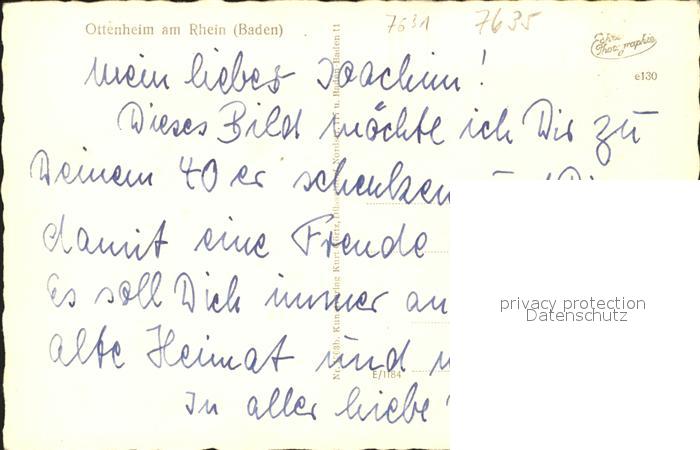 Ottenheim am Rhein (Baden)
7631 7635
Echte Photographie
e130
Mein lieber Joachim!
Dieses Bild möchte ich Dir zu
Deinem 40er schenken und Di
damit eine Freude
Es soll Dich immer an
alte Heimat und
In aller Liebe
E/1184
privacy protection
Datenschutz